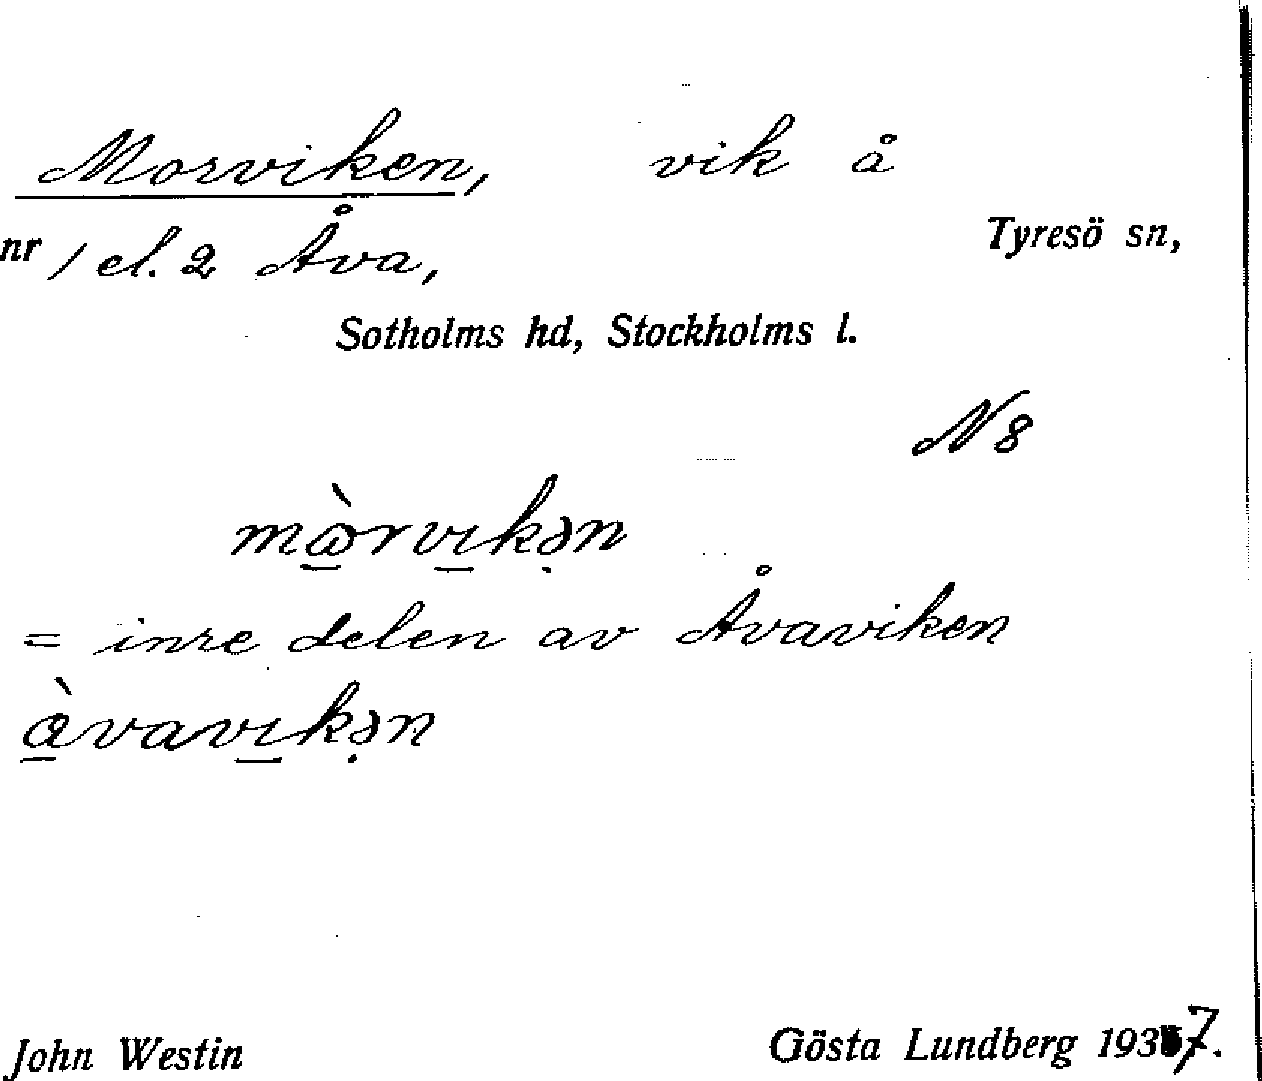 Morviken, vik å
nr 1 el. 2 Åva, Tyresö sn,
Sotholms hd, Stockholms l.
N8
mὼ̲rvı̲kə̣n
= inre delen av Åvaviken
à̲vavı̲kə̣n
John Westin Gösta Lundberg 1937.